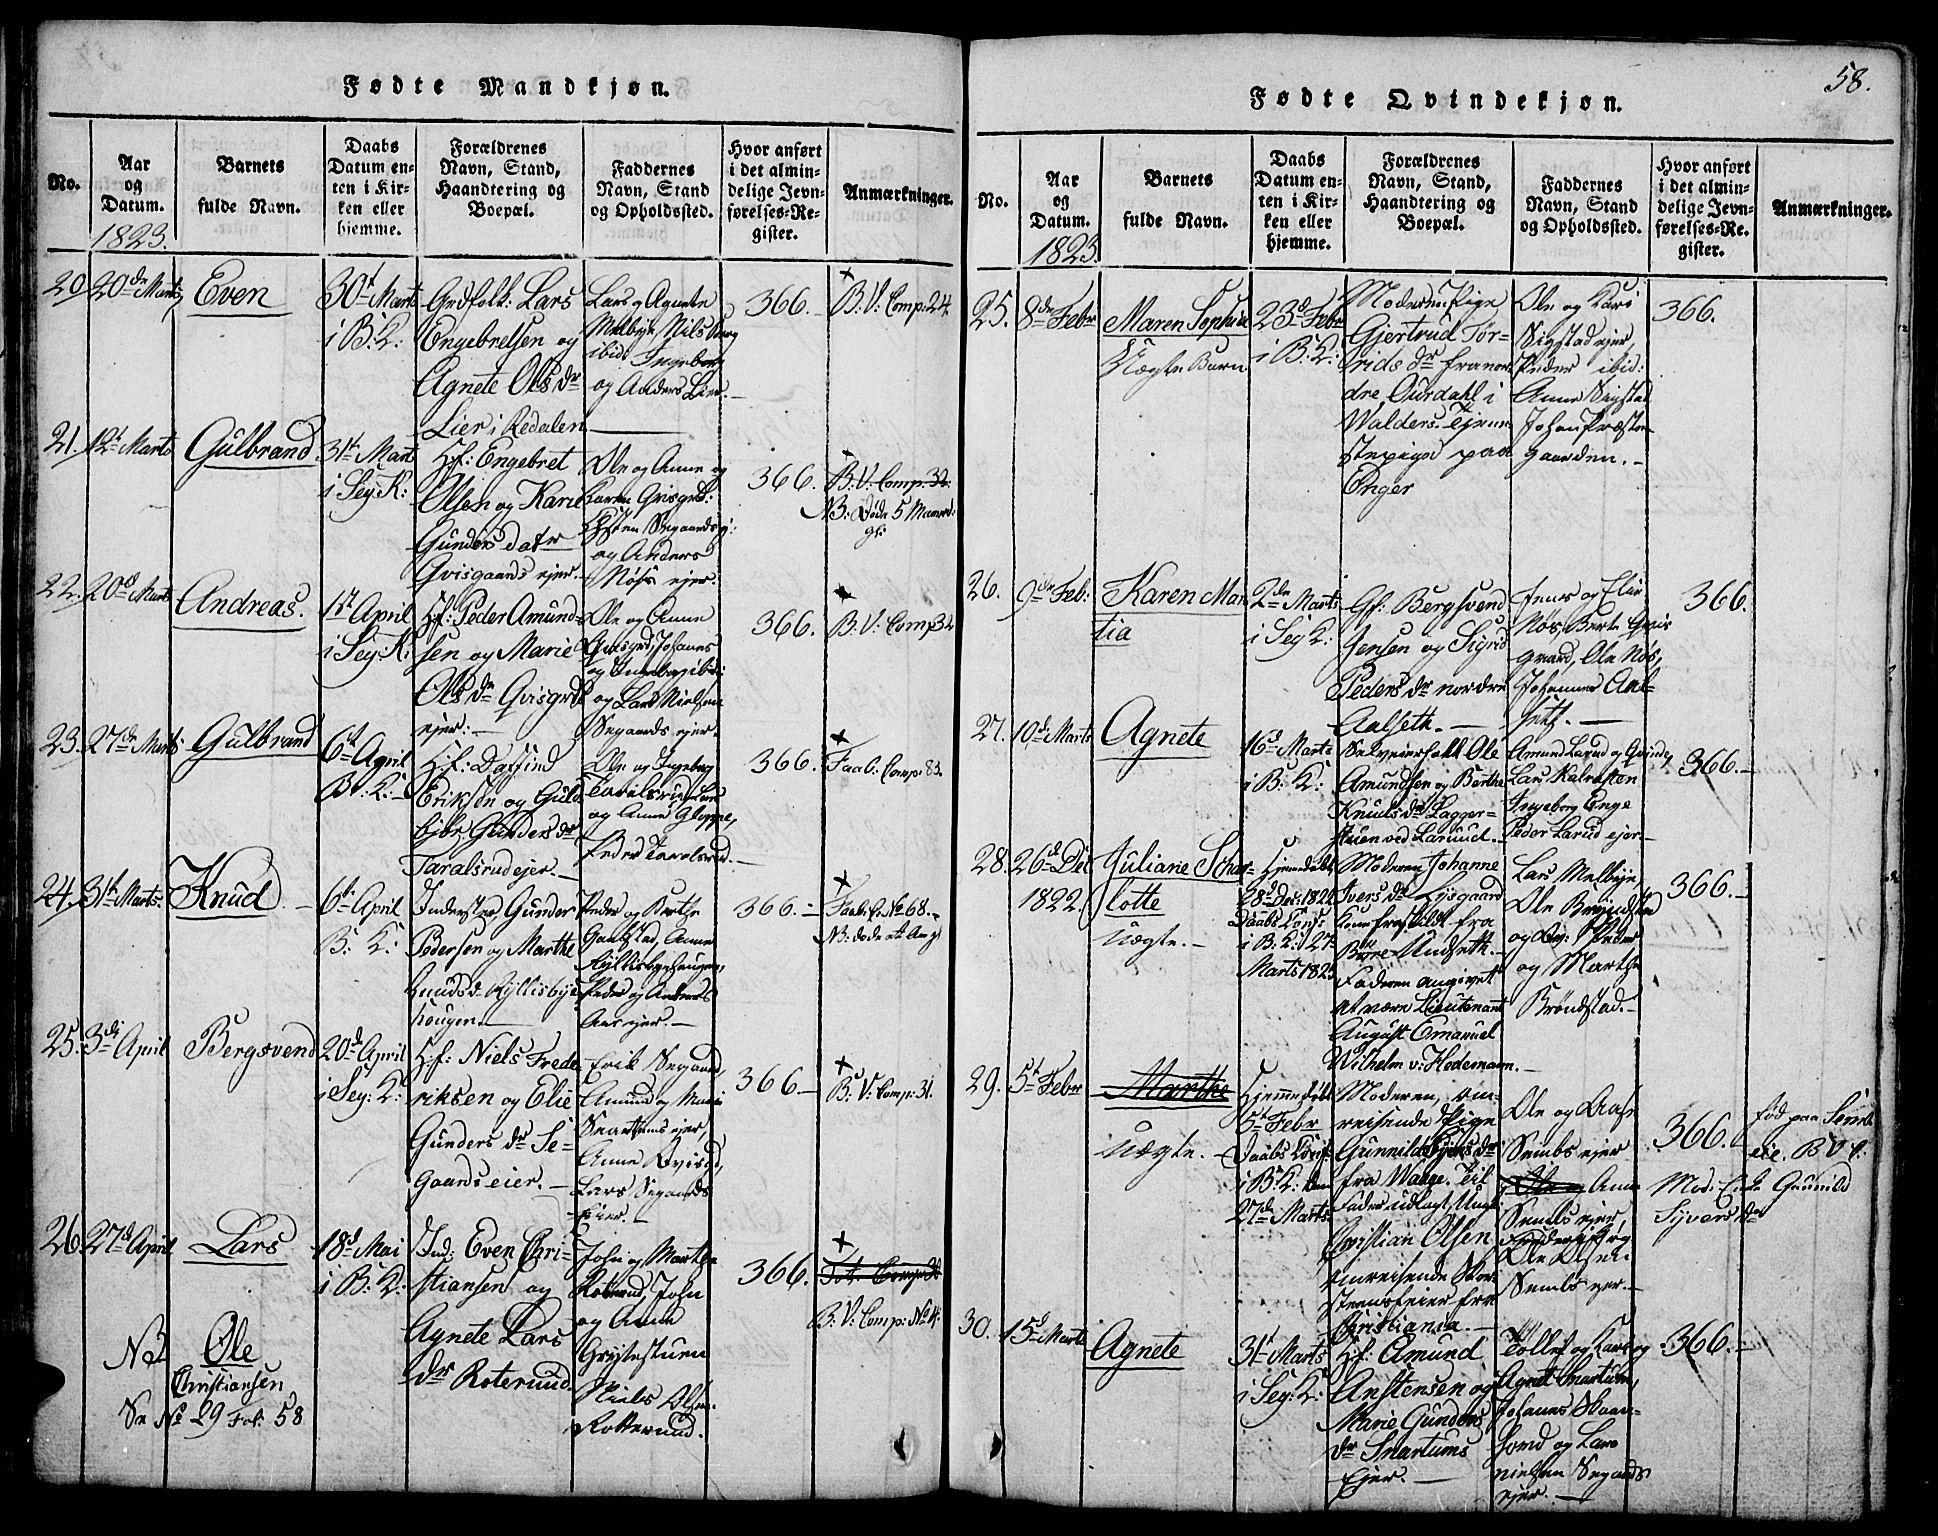 Fødte Mandkjøn.
No.
Aar
og
Datum.
1823.
Barnets
fulde Navn.
Daabs
Datum en-
ten i Kir-
ken eller
hjemme.
Forældrenes
Navn, Stand,
Haandtering og
Boepæl.
Faddernes
Navn, Stand
og Opholdssted.
Hvor anført
i det almin-
delige Jevn-
førelses-Re-
gister.
Anmærkninger.
20.
20de Marts
Even
30t Marts
i B: K:
Grdfolk: Lars
Engebretsen og
Agnete Ols dr
Lier i Redalen
Lars og Agnete
Melbye, Nils
ibid: Ingeborg
og Anders Lier.
366.
B: V: Comp: 24.
21.
12t Marts
Gulbrand
31t Mart
i Sey: K:
Hf: Engebret
Olsen og Karie
Gunders datr
Qvisgaards ejer.
Ole og Anne og
Karen Qvisgrd:
Østen Segaards ej:
og Anders
Nøss ejer.
366.
B: V: Comp: 32.
NB: Døde 5
22.
20d Marts
Andreas.
1t April
i Sey: K:
Hf: Peder Amund-
sen og Marie
Ols dr Qvisgrds
ejer:
Ole og Anne
Qvisgrd, Johannes
og Ingeborg ibid:
og Lars Nielsen
Segaards ejer.
366.
B: V: Comp 32
23.
27de Marts
Gulbrand
6t April
B: K:
Hf: Dalfind
Eriksen og Guld-
bjør Gunders dr
Taralsrud ejer.
Ole og Ingebor
Taralsrud, Lars
og Anne Gloppe,
Peder Taralsrud.
366.
Faab: Comp: 83.
24.
31t Marts.
Knud
6t April
B: K:
Inderster Gunder
Pedersen og Marthe
Knuds d. Hyllisbye
haugen.
Peder og Berthe
Gaukstad, Anne
Hyllisbyehaugen,
Peder og Anders
Aas ejer.
366.
Faab: Co No 68.
NB: døde
25.
3di April
Bergsvend
20d April
i Sey: K:
Hf: Niels Frede-
riksen og Elie
Gunders dr Se-
gaards eier.
Erik Segaard,
Amund og Marie
Snartums ejer,
Anne
Lars Segaards
Eier.
366
B: V: Comp: 31.
26.
27d April
Lars
18d Mai
i B: K:
Ind: Even Chri-
stiansen og
Agnete Lars
dr Roterud.
John og Marthe
Roterud, John
og Anne
Grytestuen
Niels Olsen
Rotterud.
366.
B: V: Comp: No 4.
NB
Ole
Christiansen
Se No 29 Fol: 58
58.
Fødte Qvindekjøn.
No.
Aar
og
Datum.
1823.
Barnets
fulde Navn.
Daabs
Datum en-
ten i Kir-
ken eller
hjemme.
Forældrenes
Navn, Stand,
Haandtering og
Boepæl.
Faddernes
Navn, Stand
og Opholdssted.
Hvor anført
i det almin-
delige Jevn-
førelses-Re-
gister.
Anmærkninger.
25.
8de Febr
Maren Sophie
Uægte Barn
23d Febr
i B: K:
Moderen Pige
Gjertrud Tør-
rids dr fra nor-
dre Ourdahl i
Walders. Tjene-
stepige paa
Enger
Ole og Kari
Sigstad ejer,
Peder ibid:
Anne Sigstad
Johan Præste-
gaarden.
366.
26.
9de Feb:
Karen Mar-
tia
2de Marts
i Sey K:
Gf: Bergsvend
Jensen og Sigrid
Peders dr nordre
Aalseth.
Jens og Elie
Nøs, Berte Qvis-
gaard, Ole Nøs,
Johannes Aal-
seth.
366.
27.
10d Marts
Agnete
16d Marts
i B: K:
Selveierfolk Ole
Amundsen og Berthe
Knuds dr Lagger-
stuen ved Larud.
Amund Larud og Qvinde,
Lars Kalrasten
Ingeborg Enge
Peder Larud ejer.
366.
28.
26d Dec
1822.
Juliane Schar-
lotte
uægte.
Hjemmedøbt
28d Dec: 1822
Daabs Conf:
i B: K: 27
Marts 1823
Moderen Johanne
Ivers dr Lysgaard
Kone fraskildt fra
Børe Audseth.
Faderen angivet
at være Lieutenant
August Emanuel
Wilhelm v: Hodemann.
Lars Melbye,
Ole Brøndstad
og Peder
og Marthe
Brøndstad.
366.
29.
5t Febr
Marthe
uægte.
Hjemmedøbt
5t Febr
Daabs Conf:
i B: K: den
27d Marts
Moderen, om-
reisende Pige
Gunnild Syvers dr
fra Waage. Til
Fader udlagt Ungk:
Christian Olsen
omreisende Skor-
steensfeier fra
Christiania.
Ole og Aase
Sembs ejer
Ole og Anne
Sembs ejer,
Ole Olsen
Sembs ejer.
366.
fød paa Semb
eie. B V.
Mod: Enke Gunild
Syvers dr
30.
15d Marts
Agnete
31t Marts
i Sey: K:
Hf: Amund
Anstensen og
Marie Gunders
dr Snartums
Ejer.
Tollef og Kari og
Agnet Snartum,
Johannes
og Lars
Nielsen Segaards
ejer.
366.